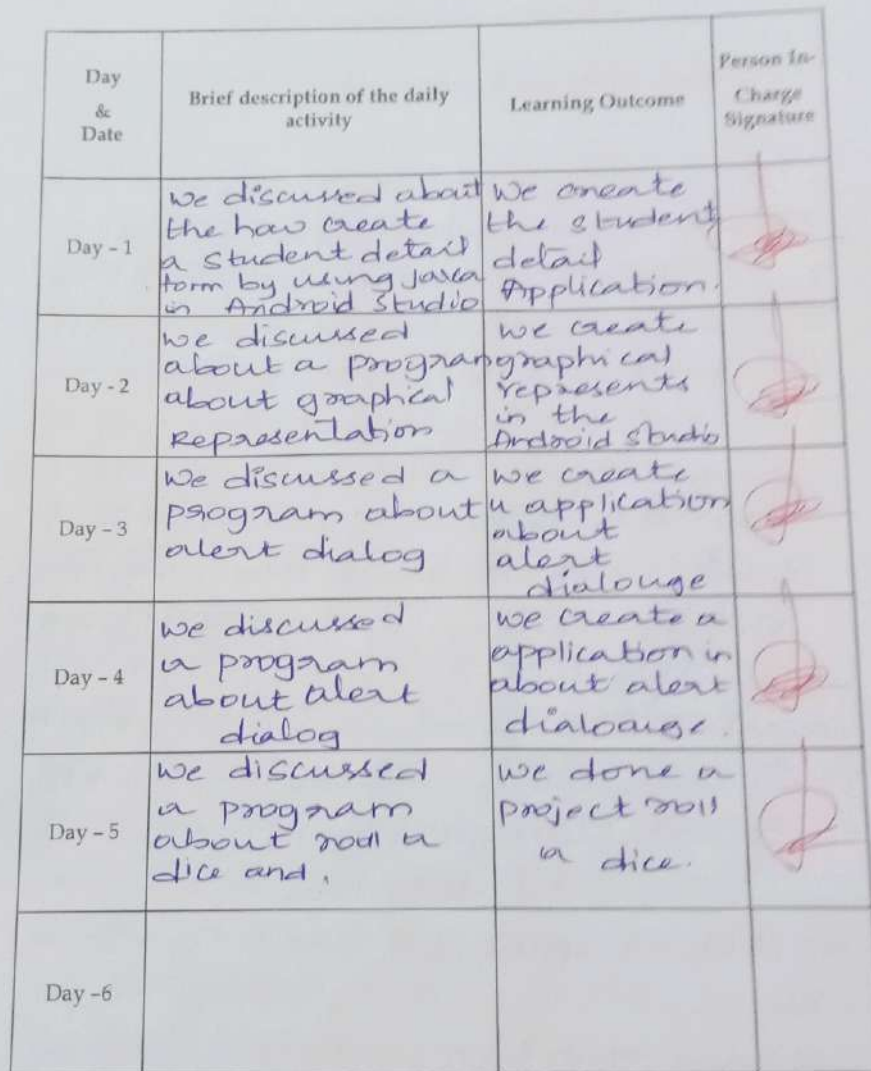 Day
&
Date
Brief description of the daily
activity
Learning Outcome
Person In-
Charge
Signature
Day - 1
we discussed about
the how create
a student detail
form by using java
in Android Studio
we create
the student
detail
Application.
Day - 2
we discussed
about a program
about graphical
Representation
we create
graphical
represents
in the
Android Studio
Day - 3
we discussed a
program about
alert dialog
we create
a application
about
alert
dialouge
Day - 4
we discussed
a program
about alert
dialog
we create a
application in
about alert
dialouge.
Day - 5
we discussed
a program
about roll a
dice and.
we done a
project roll
a dice.
Day -6